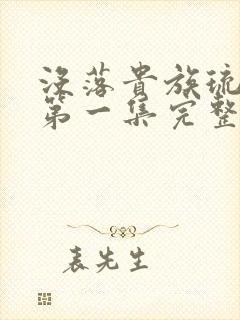 没落貴族琉
第一集完整
表先生